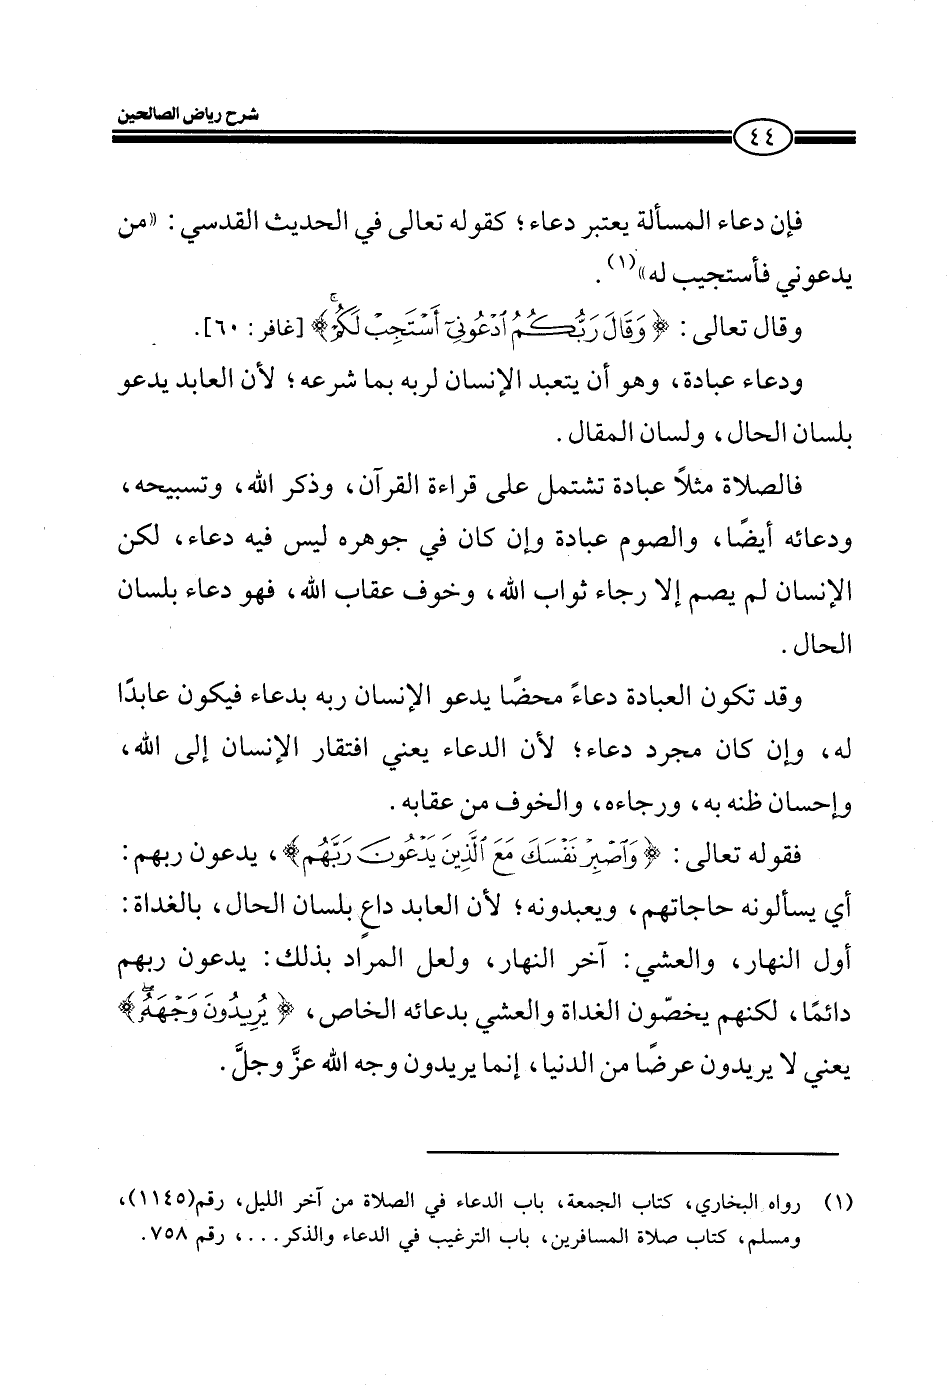 شرح رياض الصالحين
٤٤
فإن دعاء المسألة يعتبر دعاء؛ كقوله تعالى في الحديث القدسي: «من
يدعوني فأستجيب له»(١).
وقال تعالى: ﴿وَقَالَ رَبُّكُمُ ٱدْعُونِيٓ أَسْتَجِبْ لَكُمْ﴾ [غافر: ٦٠].
ودعاء عبادة، وهو أن يتعبد الإنسان لربه بما شرعه؛ لأن العابد يدعو
بلسان الحال، ولسان المقال.
فالصلاة مثلاً عبادة تشتمل على قراءة القرآن، وذكر الله، وتسبيحه،
ودعائه أيضًا، والصوم عبادة وإن كان في جوهره ليس فيه دعاء، لكن
الإنسان لم يصم إلا رجاء ثواب الله، وخوف عقاب الله، فهو دعاء بلسان
الحال.
وقد تكون العبادة دعاءً محضًا يدعو الإنسان ربه بدعاء فيكون عابدًا
له، وإن كان مجرد دعاء؛ لأن الدعاء يعني افتقار الإنسان إلى الله،
وإحسان ظنه به، ورجاءه، والخوف من عقابه.
فقوله تعالى: ﴿وَٱصْبِرْ نَفْسَكَ مَعَ ٱلَّذِينَ يَدْعُونَ رَبَّهُم﴾، يدعون ربهم:
أي يسألونه حاجاتهم، ويعبدونه؛ لأن العابد داعٍ بلسان الحال، بالغداة:
أول النهار، والعشي: آخر النهار، ولعل المراد بذلك: يدعون ربهم
دائمًا، لكنهم يخصّون الغداة والعشي بدعائه الخاص، ﴿يُرِيدُونَ وَجْهَهُۥ﴾
يعني لا يريدون عرضًا من الدنيا، إنما يريدون وجه الله عزَّ وجلَّ.
(١) رواه البخاري، كتاب الجمعة، باب الدعاء في الصلاة من آخر الليل، رقم(١١٤٥)،
ومسلم، كتاب صلاة المسافرين، باب الترغيب في الدعاء والذكر...، رقم ٧٥٨.